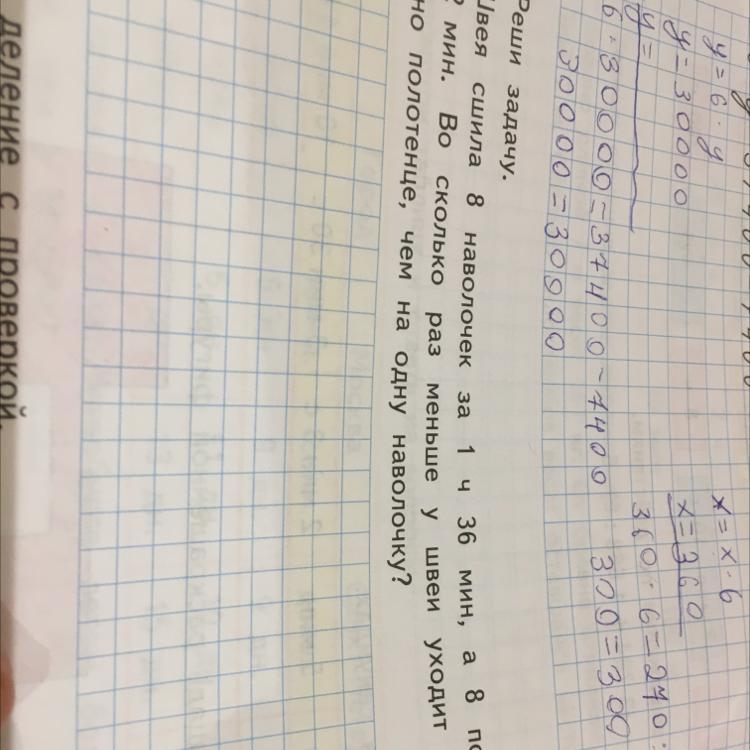 y = 6 · y
y = 30000
y =
6 · 30000 = 37400 - 7400
30000 = 30000
x = x · 6
x = 360
360 : 6 = 270 :
300 = 300
Реши задачу.
Швея сшила 8 наволочек за 1 ч 36 мин, а 8 по
2 мин. Во сколько раз меньше у швеи уходит
но полотенце, чем на одну наволочку?
деление с проверкой.